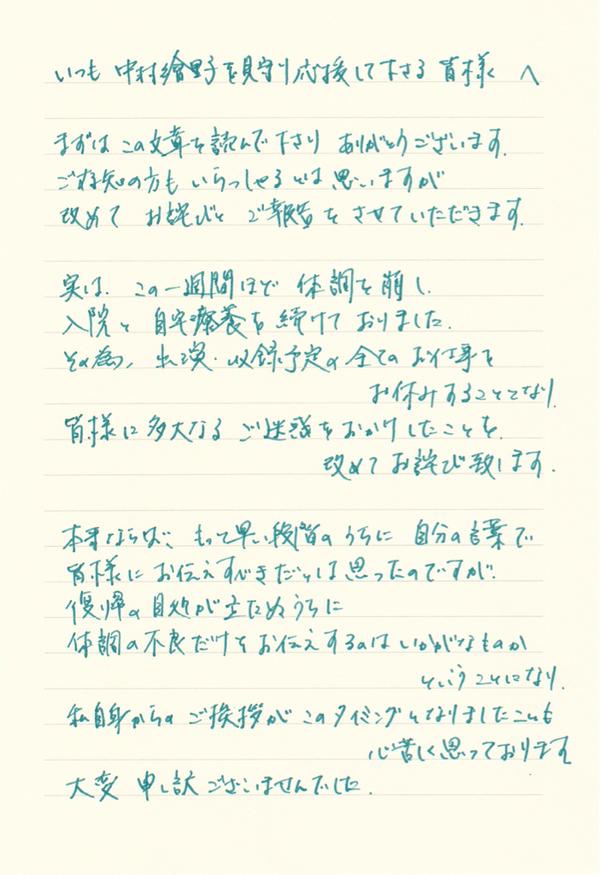 いつも 中村繪里子を見守り応援して下さる 皆様 へ
まずは この文章を読んで下さり ありがとうございます。
ご存知の方も いらっしゃるとは 思いますが
改めて お詫びと ご報告を させていただきます。
実は、この一週間ほど 体調を崩し、
入院と 自宅療養を 続けて おりました。
その為、出演・収録予定の全てのお仕事を
お休みすることとなり、
皆様に多大なる ご迷惑をおかけしたことを、
改めてお詫び致します。
本来ならば、もっと早い段階のうちに 自分の言葉で
皆様にお伝えすべきだとは思ったのですが、
復帰の目処が立たぬうちに
体調の不良だけをお伝えするのはいかがなものか
ということになり、
私自身からの ご挨拶が このタイミングとなりましたことも
心苦しく思っております。
大変 申し訳ございませんでした。